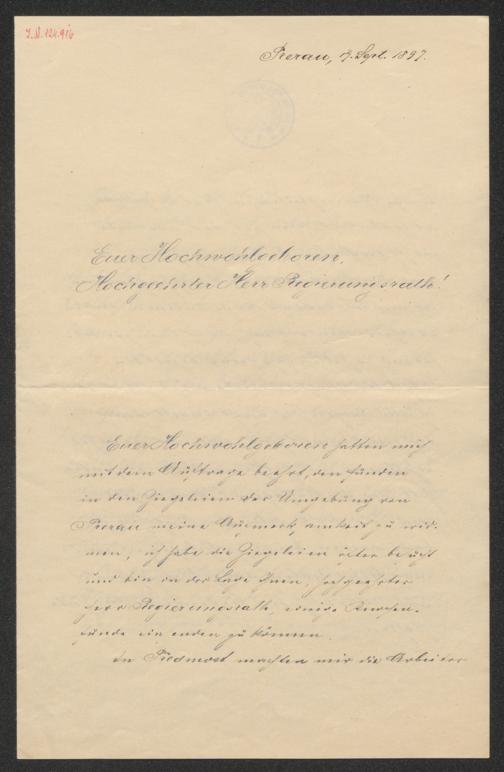 J.N. 124.916
Prerau, 7. Sept. 1897.
Euer Hochwohlgeboren,
Hochgeehrter Herr Regierungsrath!
Euer Hochwohlgeboren hatten mich
mit dem Auftrage beehrt, den Funden
in den Ziegeleien der Umgebung von
Prerau meine Aufmerksamkeit zu wid-
men, ich habe die Ziegeleien öfter besucht
und bin in der Lage Ihnen, hochgeehrter
Herr Regierungsrath, einige Knochen-
funde einsenden zu können.
In Předmost machten mir die Arbeiter